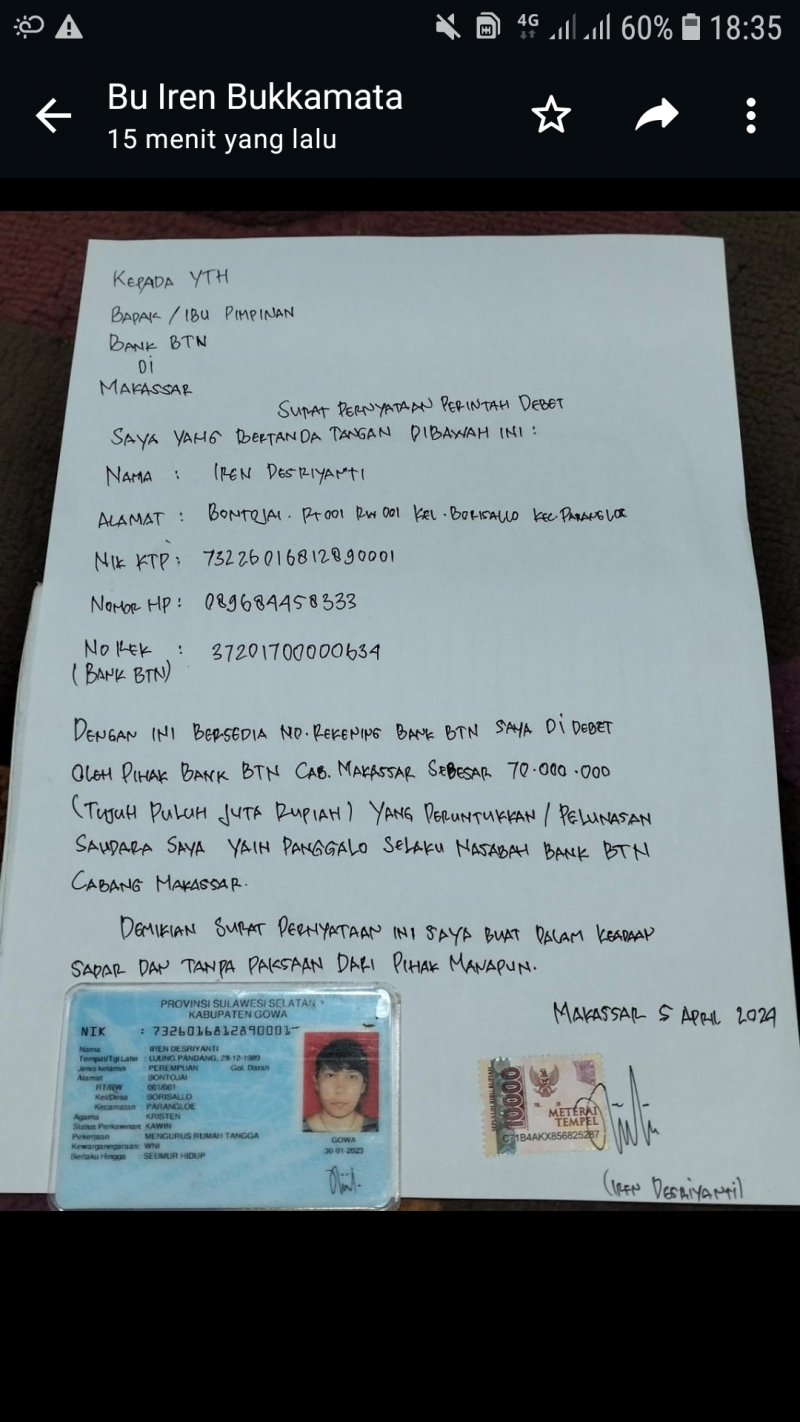 4G 60% 18:35
Bu Iren Bukkamata
15 menit yang lalu
KEPADA YTH
BAPAK / IBU PIMPINAN
BANK BTN
DI
MAKASSAR
SURAT PERNYATAAN PERINTAH DEBET
SAYA YANG BERTANDA TANGAN DIBAWAH INI :
NAMA : IREN DESRIYANTI
ALAMAT : BONTOJAI. RT001 RW 001 KEL. BORISALLO KEC. PARANGLOE
NIK KTP : 73226016812890001
NOMOR HP : 089684458333
NO REK : 37201700000634
(BANK BTN)
DENGAN INI BERSEDIA NO. REKENING BANK BTN SAYA DI DEBET
OLEH PIHAK BANK BTN CAB. MAKASSAR SEBESAR 70.000.000
(TUJUH PULUH JUTA RUPIAH) YANG PERUNTUKKAN / PELUNASAN
SAUDARA SAYA YAIN PANGGALO SELAKU NASABAH BANK BTN
CABANG MAKASSAR.
DEMIKIAN SURAT PERNYATAAN INI SAYA BUAT DALAM KEADAAN
SADAR DAN TANPA PAKSAAN DARI PIHAK MANAPUN.
MAKASSAR 5 APRIL 2024
PROVINSI SULAWESI SELATAN
KABUPATEN GOWA
NIK : 7326016812890001
Nama : IREN DESRIYANTI
Tempat/Tgl Lahir : UJUNG PANDANG, 28-12-1989
Jenis kelamin : PEREMPUAN Gol. Darah
Alamat : BONTOJAI
RT/RW : 001/001
Kel/Desa : BORISALLO
Kecamatan : PARANGLOE
Agama : KRISTEN
Status Perkawinan : KAWIN
Pekerjaan : MENGURUS RUMAH TANGGA
Kewarganegaraan : WNI
Berlaku Hingga : SEUMUR HIDUP
GOWA
30-01-2023
10000
METERAI
TEMPEL
C71B4AKX856825287
(IREN DESRIYANTI)